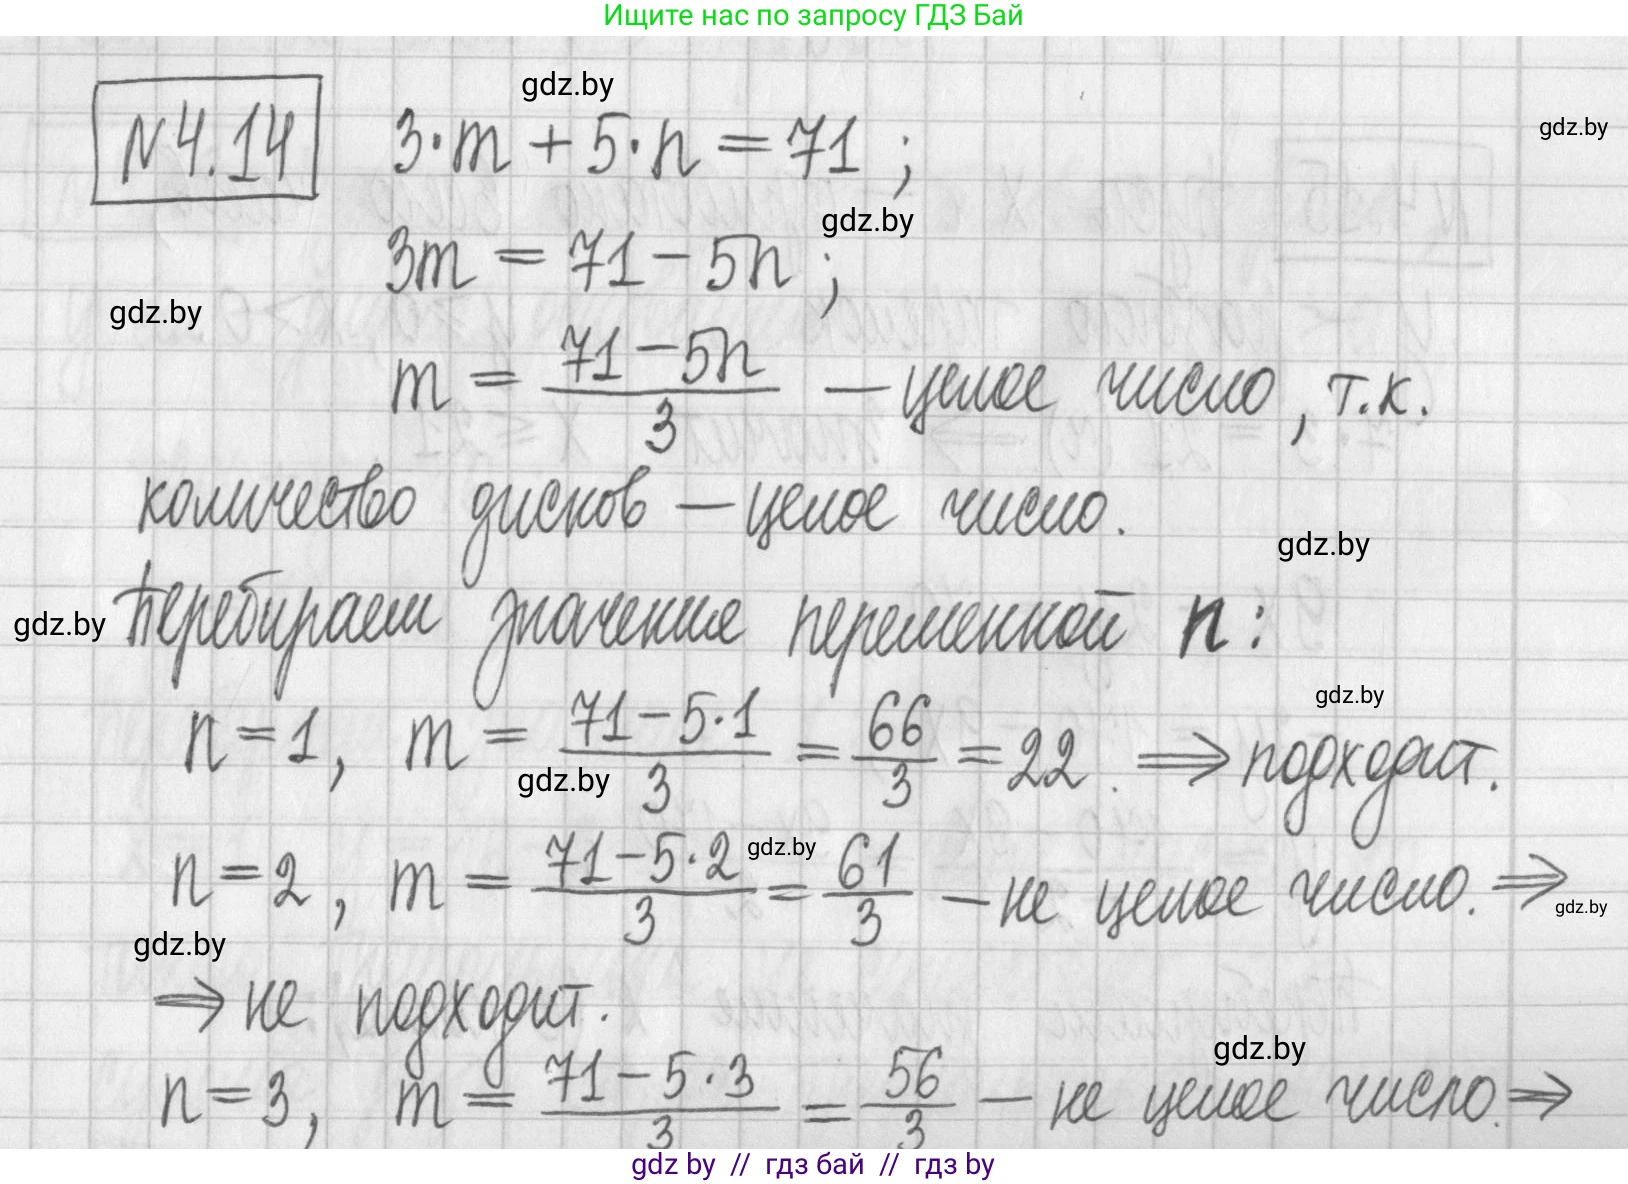 Ищите нас по запросу ГДЗ Бай
gdz.by
№4.14 3·m + 5·n = 71 ;
gdz.by
gdz.by
3m = 71 - 5n ;
gdz.by
m = (71 - 5n)/3 — целое число, т.к.
количество дисков — целое число.
gdz.by
gdz.by
Перебираем значение переменной n:
gdz.by
n = 1, m = (71 - 5·1)/3 = 66/3 = 22. ⇒ подходит.
gdz.by
gdz.by
n = 2, m = (71 - 5·2)/3 = 61/3 — не целое число. ⇒
gdz.by
gdz.by
⇒ не подходит.
gdz.by
n = 3, m = (71 - 5·3)/3 = 56/3 — не целое число. ⇒
gdz by // гдз бай // гдз by